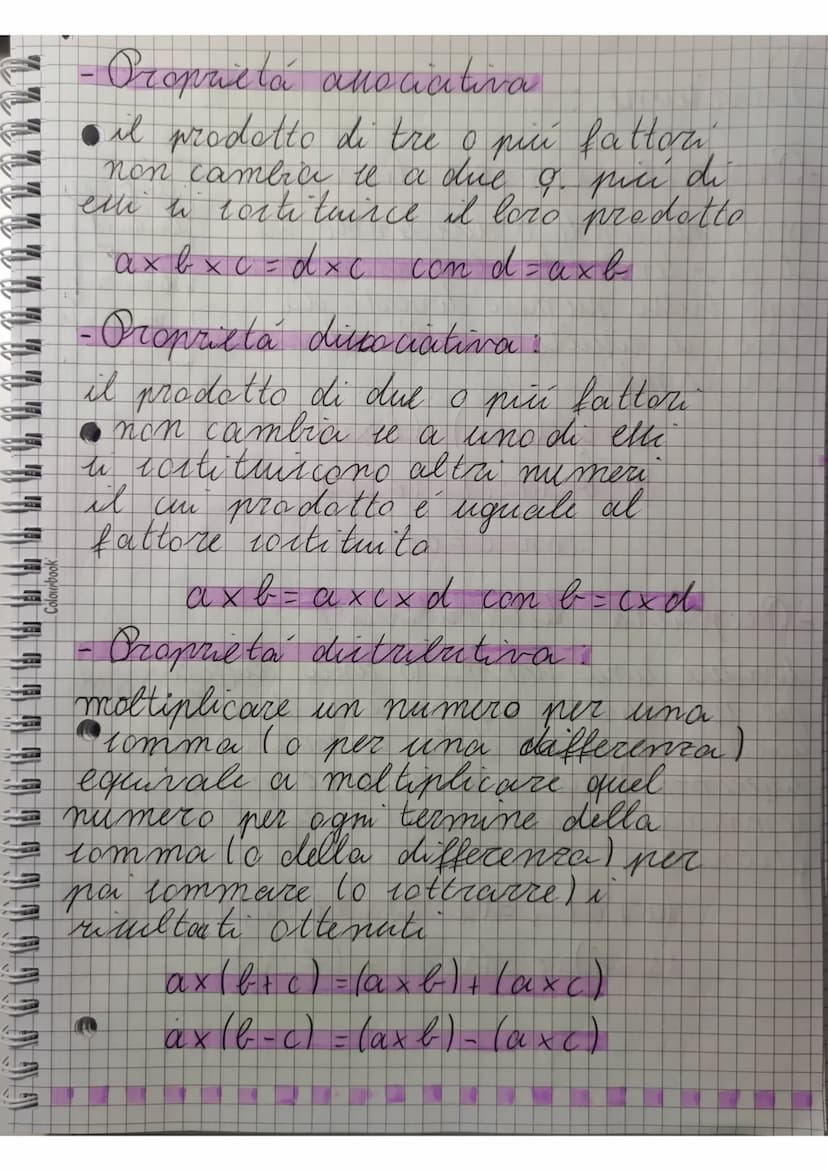 - Proprietá associativa
il prodotto di tre o piú fattori
non cambia se a due o piú di
essi si sostituisce il loro prodotto
a x b x c = d x c con d = a x b
- Proprietá dissociativa:
il prodotto di due o piú fattori
non cambia se a uno di essi
si sostituiscono altri numeri
il cui prodotto é uguale al
fattore sostituito
Colourbook
a x b = a x c x d con b = c x d
- Proprietá distributiva:
moltiplicare un numero per una
somma (o per una differenza)
equivale a moltiplicare quel
numero per ogni termine della
somma (o della differenza) per
poi sommare (o sottrarre) i
risultati ottenuti
a x (b + c) = (a x b) + (a x c)
a x (b - c) = (a x b) - (a x c)